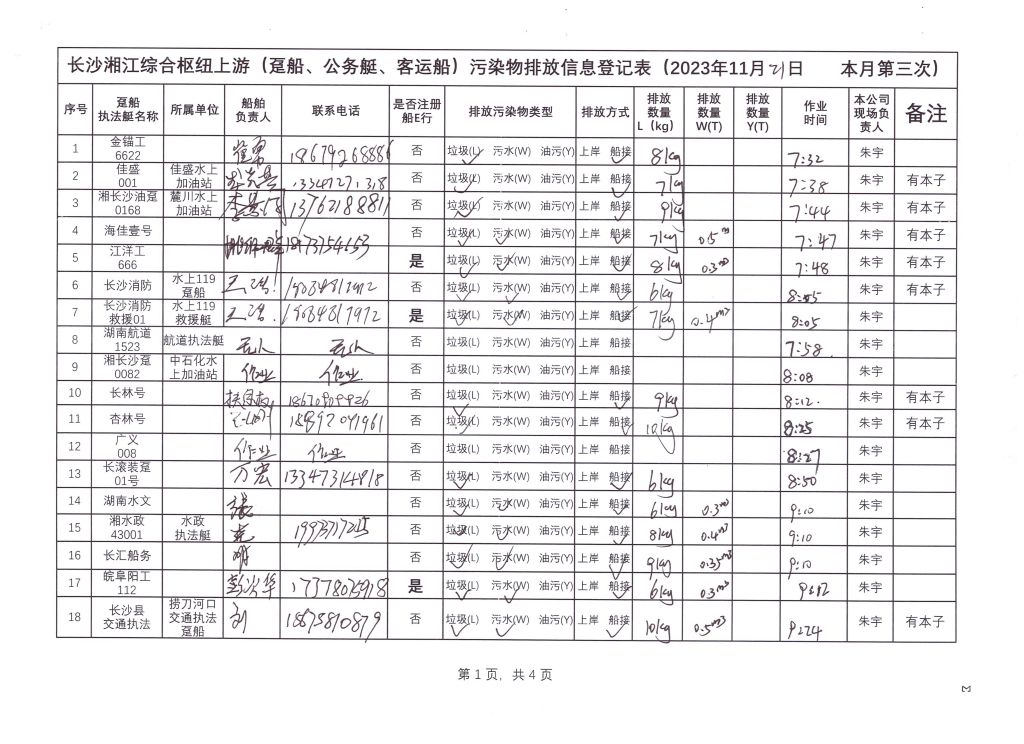 长沙湘江综合枢纽上游（趸船、公务艇、客运船）污染物排放信息登记表（2023年11月21日 本月第三次）
序号 趸船执法艇名称 所属单位 船舶负责人 联系电话 是否注册船E行 排放污染物类型 排放方式 排放数量L（kg） 排放数量W(T) 排放数量Y(T) 作业时间 本公司现场负责人 备注
1 金锚工6622 否 垃圾(L) 污水(W) 油污(Y) 上岸 船接 8kg 7:32 朱宇
2 佳盛001 佳盛水上加油站 否 垃圾(L) 污水(W) 油污(Y) 上岸 船接 7kg 7:38 朱宇 有本子
3 湘长沙油趸0168 麓川水上加油站 13762188811 否 垃圾(L) 污水(W) 油污(Y) 上岸 船接 9kg 7:44 朱宇 有本子
4 海佳壹号 否 垃圾(L) 污水(W) 油污(Y) 上岸 船接 7kg 0.5m³ 7:47 朱宇 有本子
5 江洋工666 是 垃圾(L) 污水(W) 油污(Y) 上岸 船接 8kg 0.3m³ 7:48 朱宇 有本子
6 长沙消防 水上119趸船 否 垃圾(L) 污水(W) 油污(Y) 上岸 船接 6kg 8:05 朱宇 有本子
7 长沙消防救援01 水上119救援艇 是 垃圾(L) 污水(W) 油污(Y) 上岸 船接 7kg 0.4m³ 8:05 朱宇
8 湖南航道1523 航道执法艇 无人 无人 否 垃圾(L) 污水(W) 油污(Y) 上岸 船接 7:58 朱宇
9 湘长沙趸0082 中石化水上加油站 作业 作业 否 垃圾(L) 污水(W) 油污(Y) 上岸 船接 8:08 朱宇
10 长林号 否 垃圾(L) 污水(W) 油污(Y) 上岸 船接 9kg 8:12 朱宇 有本子
11 杏林号 否 垃圾(L) 污水(W) 油污(Y) 上岸 船接 10kg 8:25 朱宇 有本子
12 广义008 作业 作业 否 垃圾(L) 污水(W) 油污(Y) 上岸 船接 8:27 朱宇
13 长滚装趸01号 万宏 13347314818 否 垃圾(L) 污水(W) 油污(Y) 上岸 船接 6kg 8:50 朱宇
14 湖南水文 否 垃圾(L) 污水(W) 油污(Y) 上岸 船接 6kg 0.3m³ 9:10 朱宇
15 湘水政43001 水政执法艇 否 垃圾(L) 污水(W) 油污(Y) 上岸 船接 8kg 0.4m³ 9:10 朱宇
16 长汇船务 否 垃圾(L) 污水(W) 油污(Y) 上岸 船接 9kg 0.35m³ 9:10 朱宇
17 皖阜阳工112 17378075918 是 垃圾(L) 污水(W) 油污(Y) 上岸 船接 6kg 0.3m³ 9:12 朱宇
18 长沙县交通执法 捞刀河口交通执法趸船 刘 18673810879 否 垃圾(L) 污水(W) 油污(Y) 上岸 船接 10kg 0.5m³ 9:24 朱宇 有本子
第 1 页，共 4 页